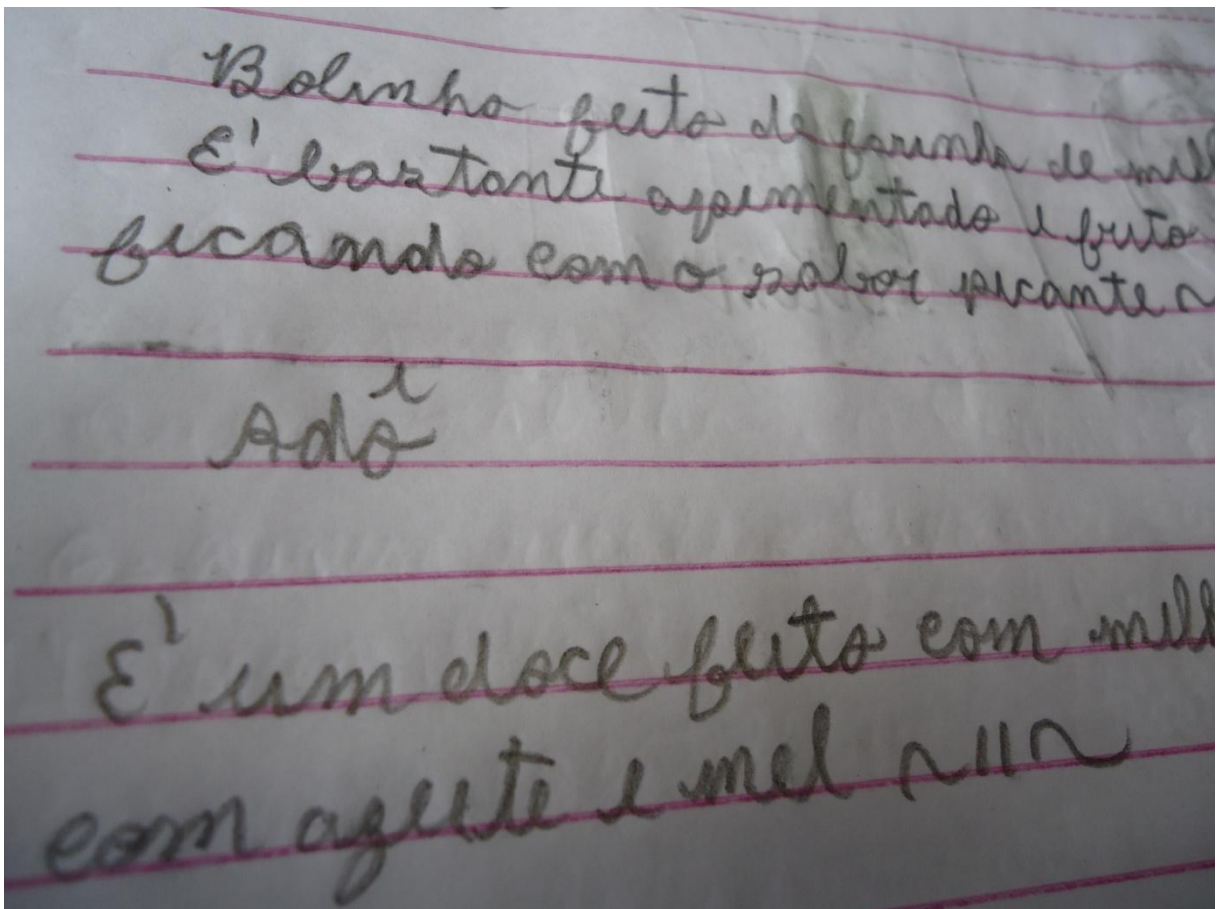 Bolinho feito de farinha de mil
É bastante apimentado e frito
ficando com o sabor picante ~
Adô
É um doce feito com milh
com azeite e mel ~||~